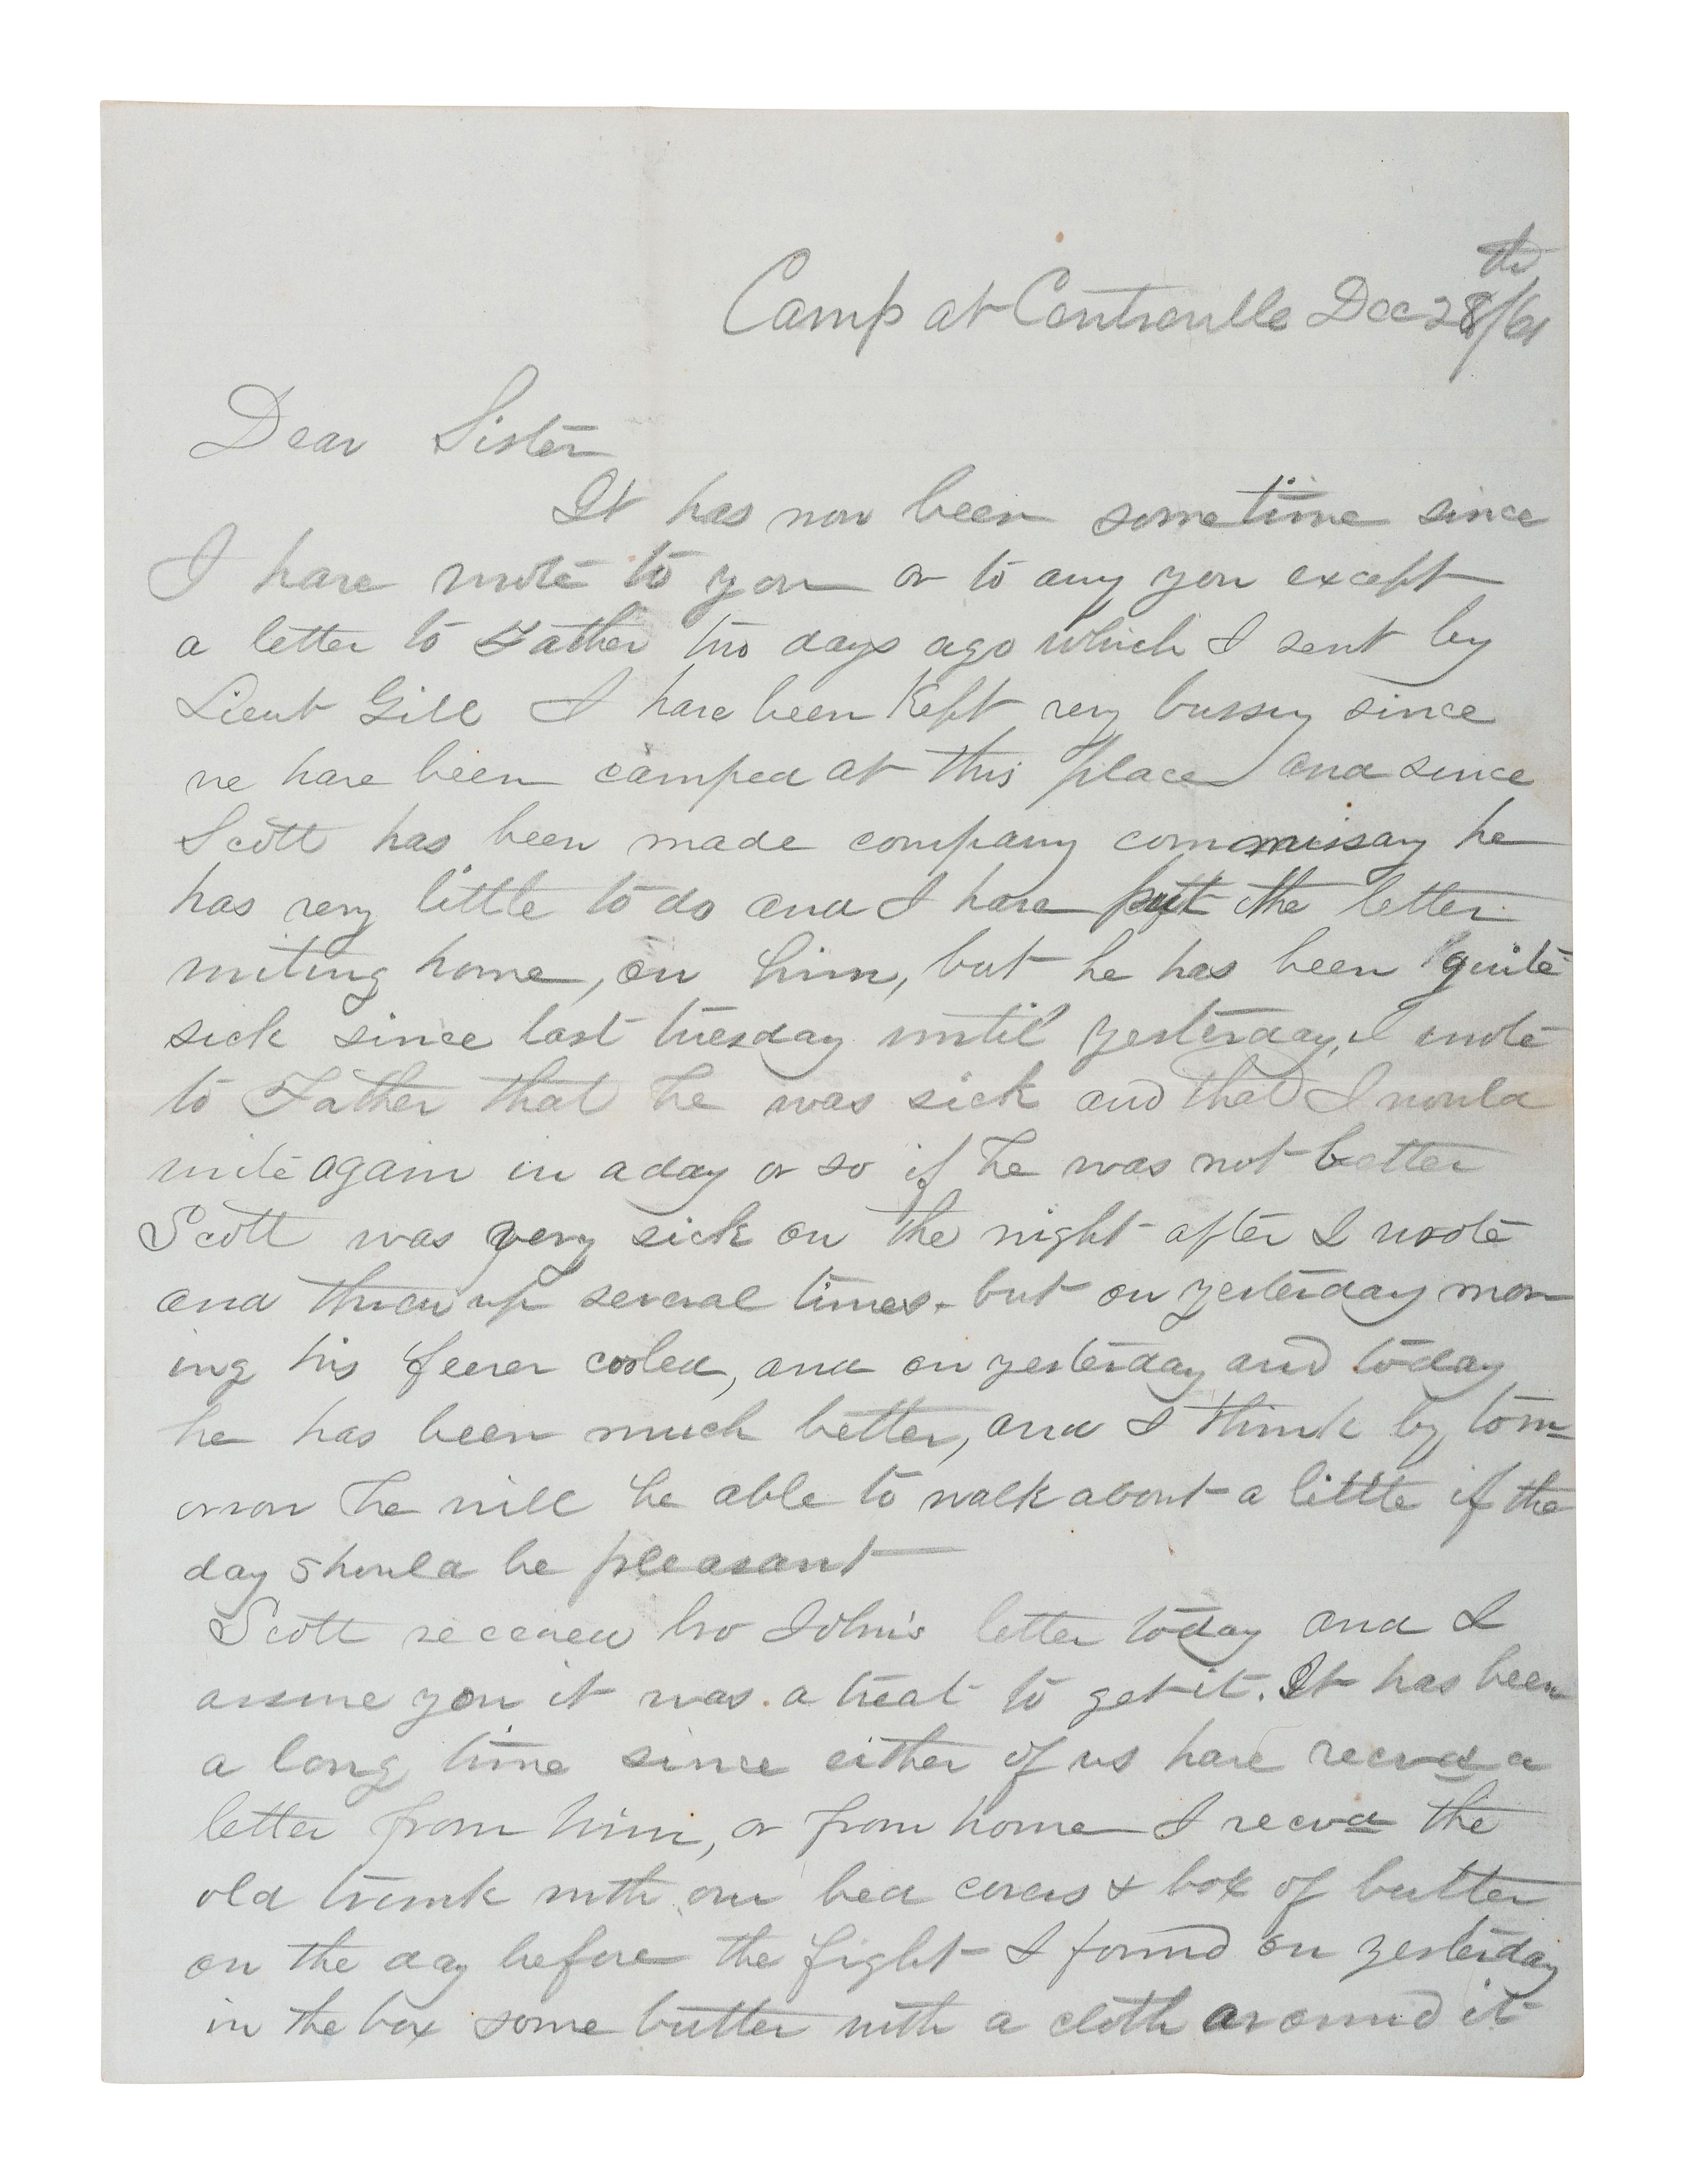 Camp at Centreville Dec 28th/61
Dear Sister
It has now been sometime since
I have wrote to you or to any you except
a letter to Father two days ago which I sent by
Lieut Gill I have been Kept very bussy since
we have been camped at this place and since
Scott has been made company commissary he
has very little to do and I have putt the letter
writing home, on him, but he has been quite
sick since last tuesday until yesterday, I wrote
to Father that he was sick and that I would
write again in a day or so if he was not better
Scott was very sick on the night after I wrote
and threw up several times. but on yesterday mor
ing his feever cooled, and on yesterday and today
he has been much better, and I think by tom=
orrow he will be able to walk about a little if the
day should be pleasant
Scott received bro John's letter today and I
assure you it was a treat to get it. It has been
a long time since either of us have recevd a
letter from him, or from home I recvd the
old trunk with our bed covers & box of butter
on the day before the fight I found on yesterday
in the box some butter with a cloth around it